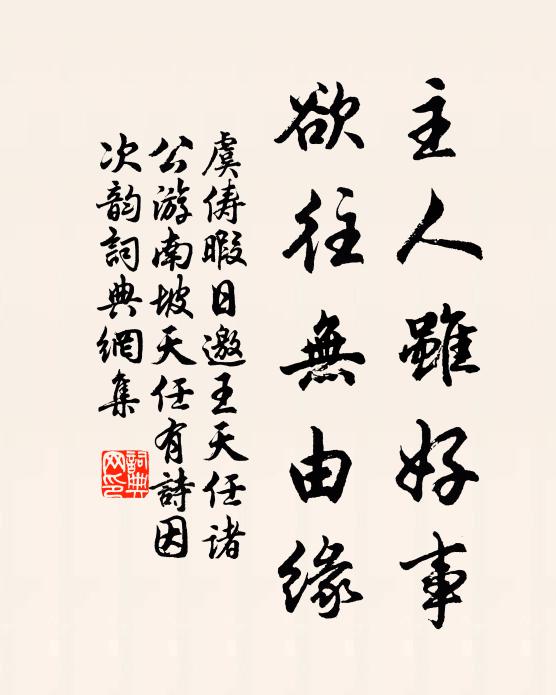 主人雖好事
欲往無由緣
虞儔暇日邀王天任諸
公游南坡天任有詩因
次韵詞典網集
詞典
网印